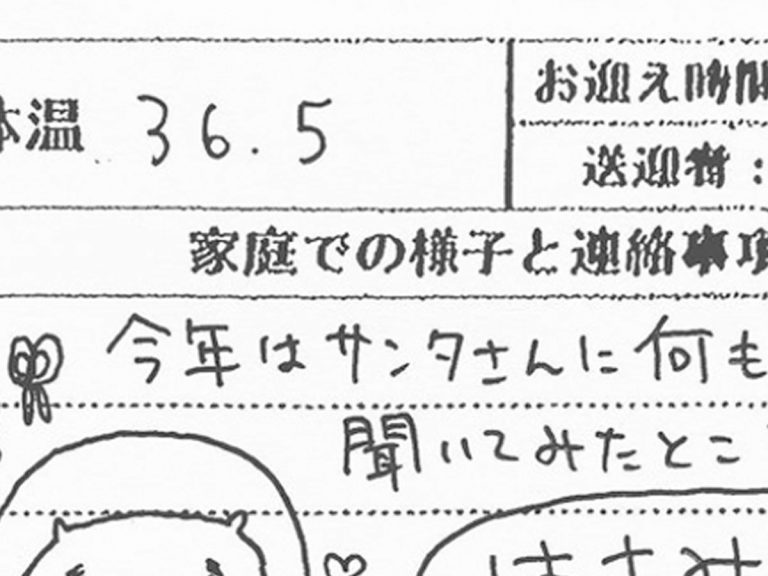 体温 36.5
お迎え時間
送迎者：
家庭での様子と連絡事項
今年はサンタさんに何も
聞いてみたとこ
はさみ